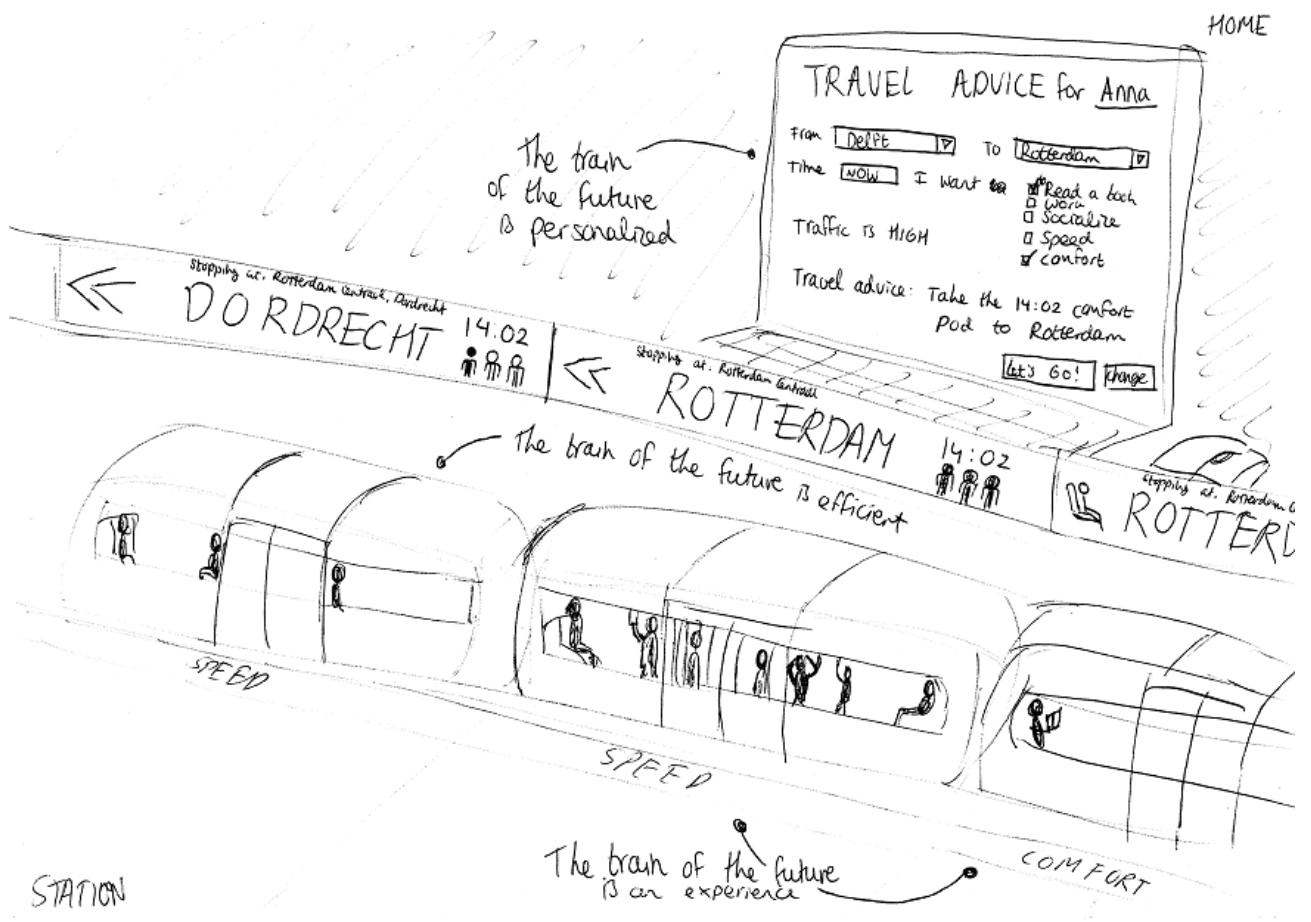 HOME
TRAVEL ADVICE for Anna
From Delft To Rotterdam
Time NOW I want
Read a book
Work
Socialize
Speed
comfort
Traffic is HIGH
Travel advice: Take the 14:02 comfort
Pod to Rotterdam
Let's Go! change
The train
of the future
is personalized
Stopping at: Rotterdam Centraal, Dordrecht
DORDRECHT 14:02
Stopping at: Rotterdam Centraal
ROTTERDAM 14:02
Stopping at: Rotterdam C
ROTTERD
The train of the future is efficient
SPEED
SPEED
COMFORT
The train of the future
is an experience
STATION